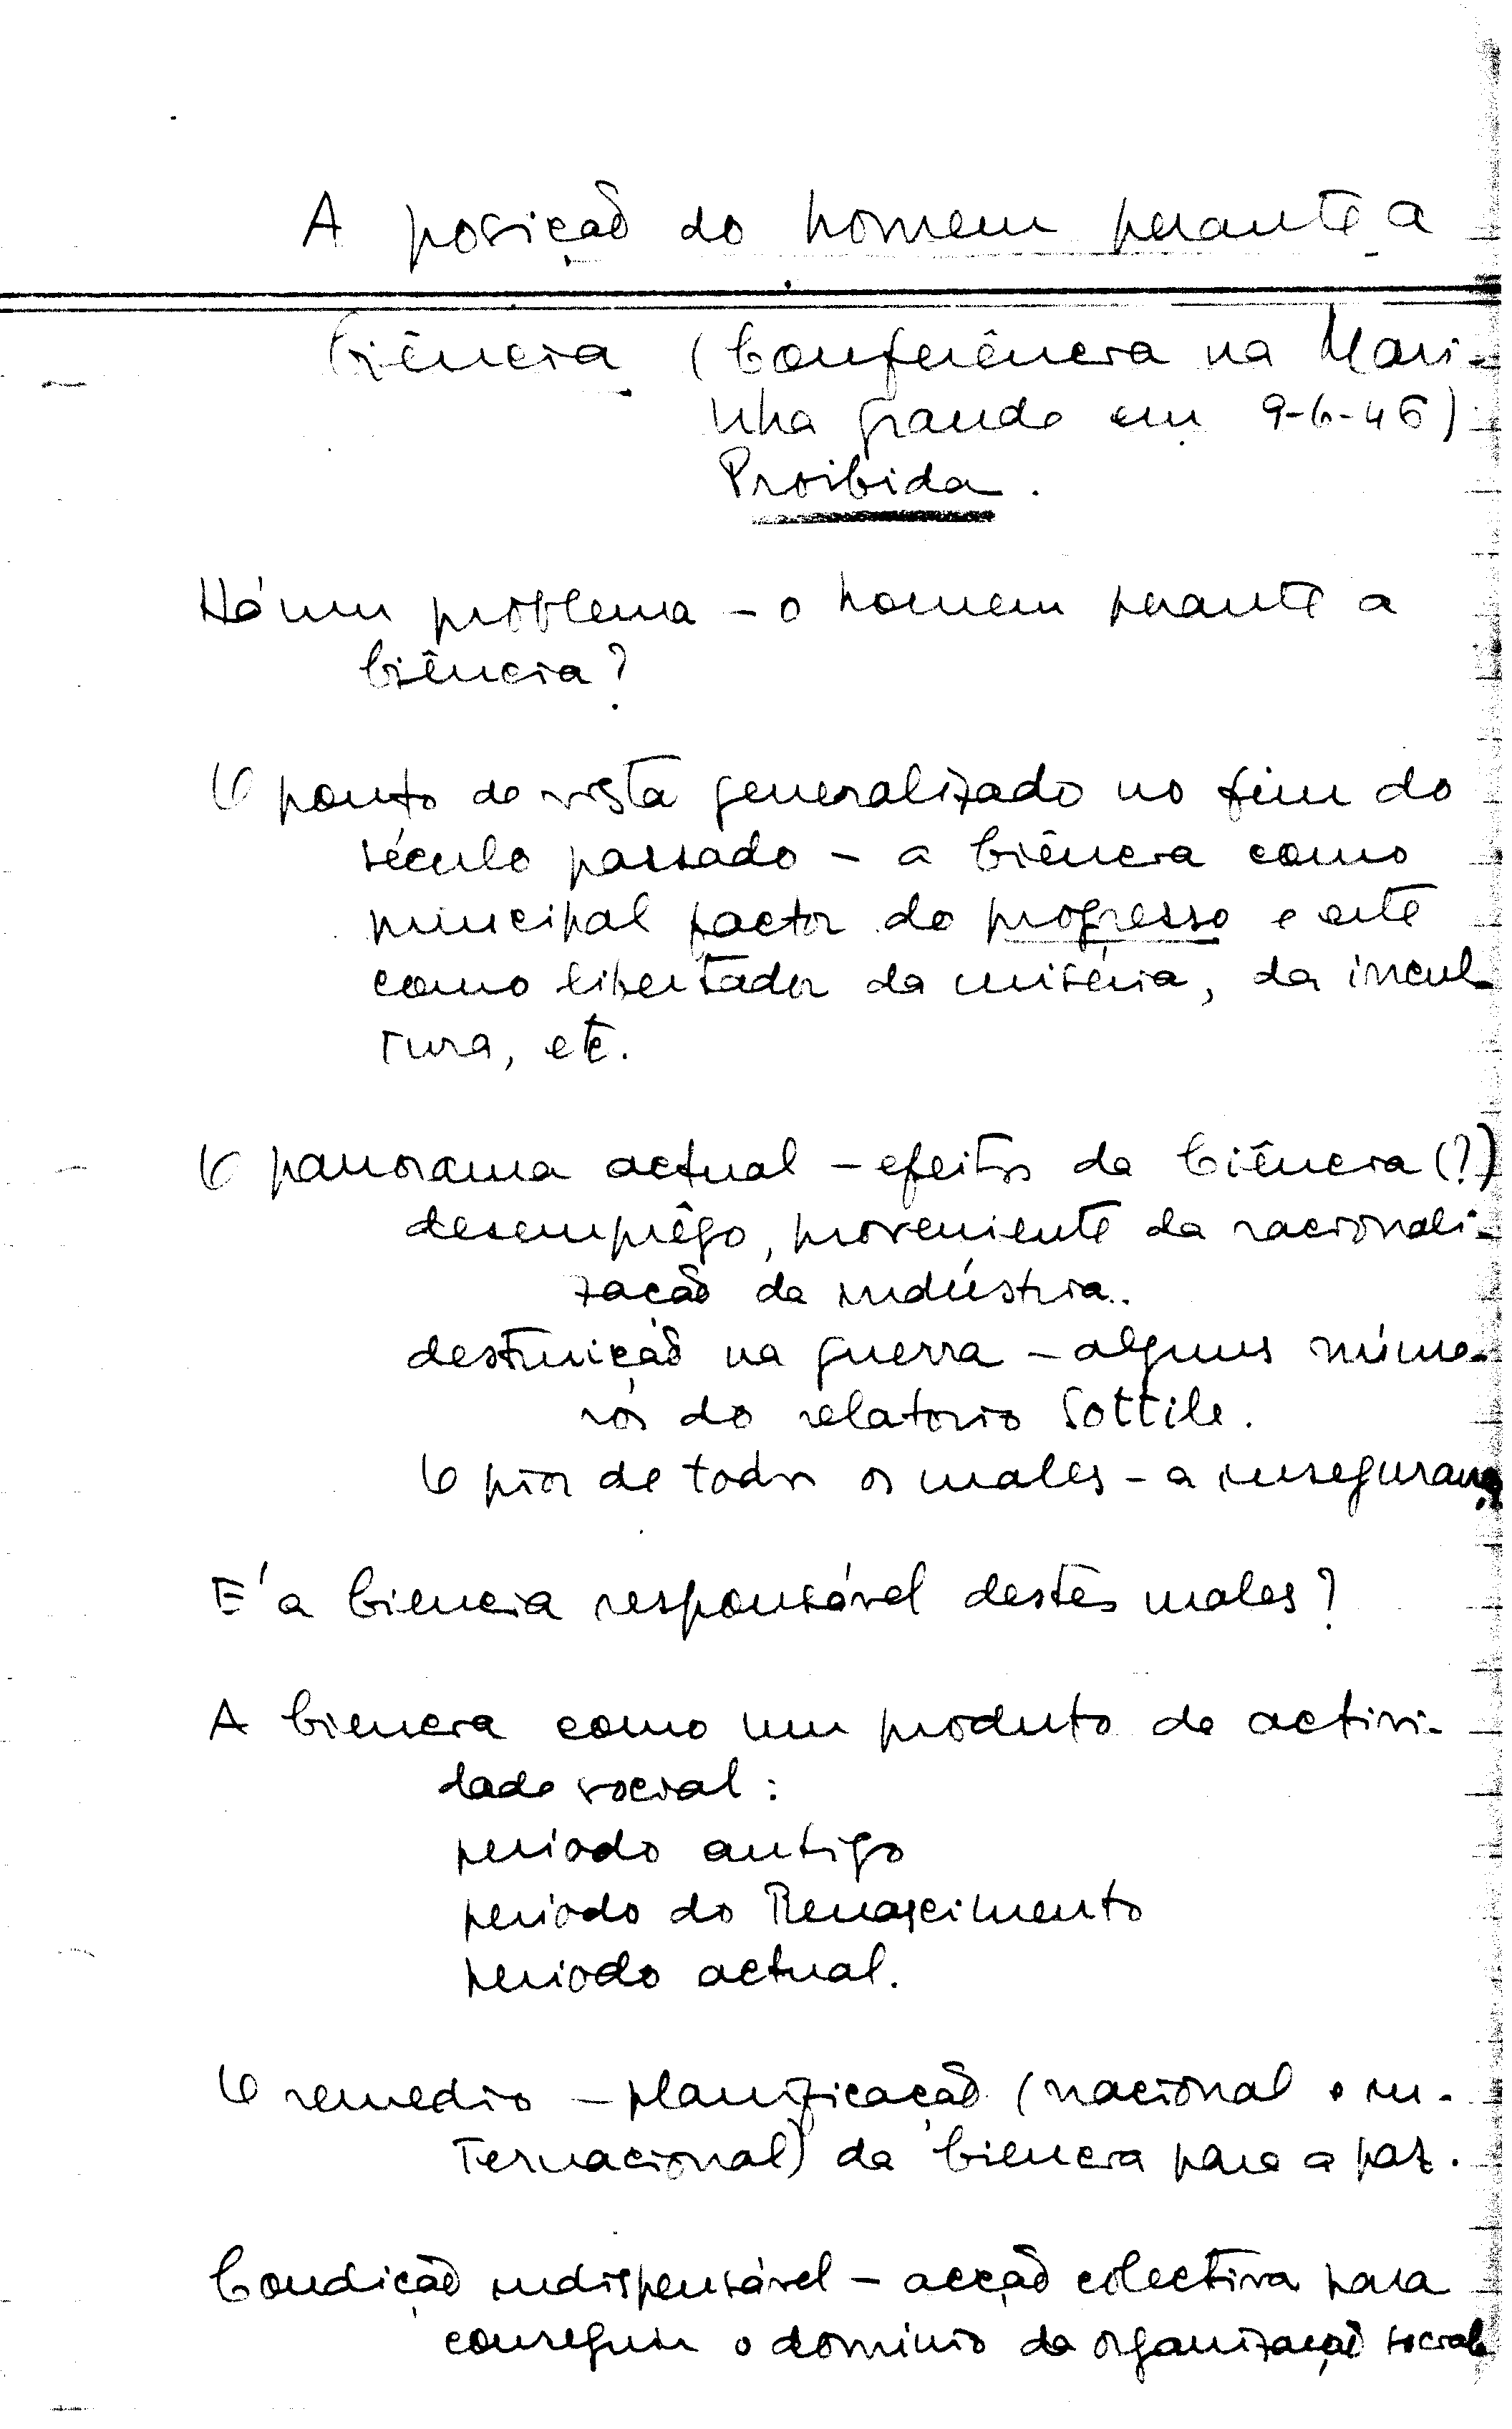 A posição do homem perante a
Ciência (Conferência na Mari-
nha grande em 9-6-46)
Proibida.
Há um problema - o homem perante a
Ciência?
O ponto de vista generalizado no fim do
século passado - a Ciência como
principal factor do progresso e este
como libertador da miséria, da incul-
tura, etc.
O panorama actual - efeitos da Ciência (?)
desemprêgo, proveniente da racionali-
zação da indústria.
destruição na guerra - alguns núme-
ros do relatorio Sottile.
O pior de todos os males - a inseguranç
E' a Ciencia responsável destes males?
A Ciencia como um produto de activi-
dade social:
periodo antigo
periodo do Renascimento
periodo actual.
O remedio - planificação (nacional e in-
ternacional) da Ciencia para a paz.
Condição indispensável - acção colectiva para
conseguir o dominio da organização social